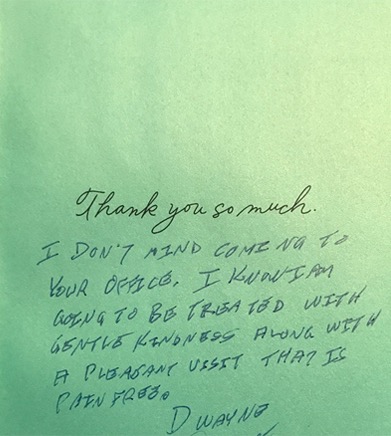 Thank you so much.
I DON'T MIND COMING TO
YOUR OFFICE. I KNOW I AM
GOING TO BE TREATED WITH
GENTLE KINDNESS ALONG WITH
A PLEASANT VISIT THAT IS
PAIN FREE.
DWAYNE